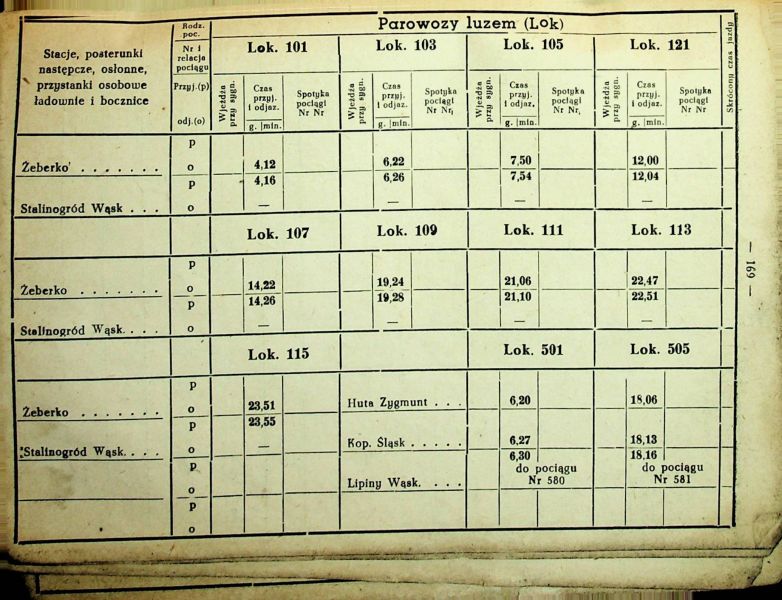 Stacje, posterunki
następcze, osłonne,
przystanki osobowe
ładownie i bocznice
Rodz.
poc.
Nr i
relacja
pociągu
Przyj.(p)
odj.(o)
Parowozy luzem (Lok)
Skrócony czas jazdy
Lok. 101 Lok. 103 Lok. 105 Lok. 121
Wjeżdża przy sygn. Czas przyj. i odjaz. g. min. Spotyka pociągi Nr Nr
Wjeżdża przy sygn. Czas przyj. i odjaz. g. min. Spotyka pociągi Nr Nr
Wjeżdża przy sygn. Czas przyj. i odjaz. g. min. Spotyka pociągi Nr Nr
Wjeżdża przy sygn. Czas przyj. i odjaz. g. min. Spotyka pociągi Nr Nr
p
Żeberko . . . . . . . o 4,12 6,22 7,50 12,00
p 4,16 6,26 7,54 12,04
Stalinogród Wąsk . . . o — — — —
Lok. 107 Lok. 109 Lok. 111 Lok. 113
p
Żeberko . . . . . . . o 14,22 19,24 21,06 22,47
p 14,26 19,28 21,10 22,51
Stalinogród Wąsk. . . . o — — — —
Lok. 115 Lok. 501 Lok. 505
p
Żeberko . . . . . . . o 23,51 Huta Zygmunt . . . 6,20 18,06
p 23,55
Stalinogród Wąsk. . . . o — Kop. Śląsk . . . . . 6,27 18,13
p 6,30 18,16
o Lipiny Wąsk. . . . do pociągu Nr 580 do pociągu Nr 581
p
o
— 169 —